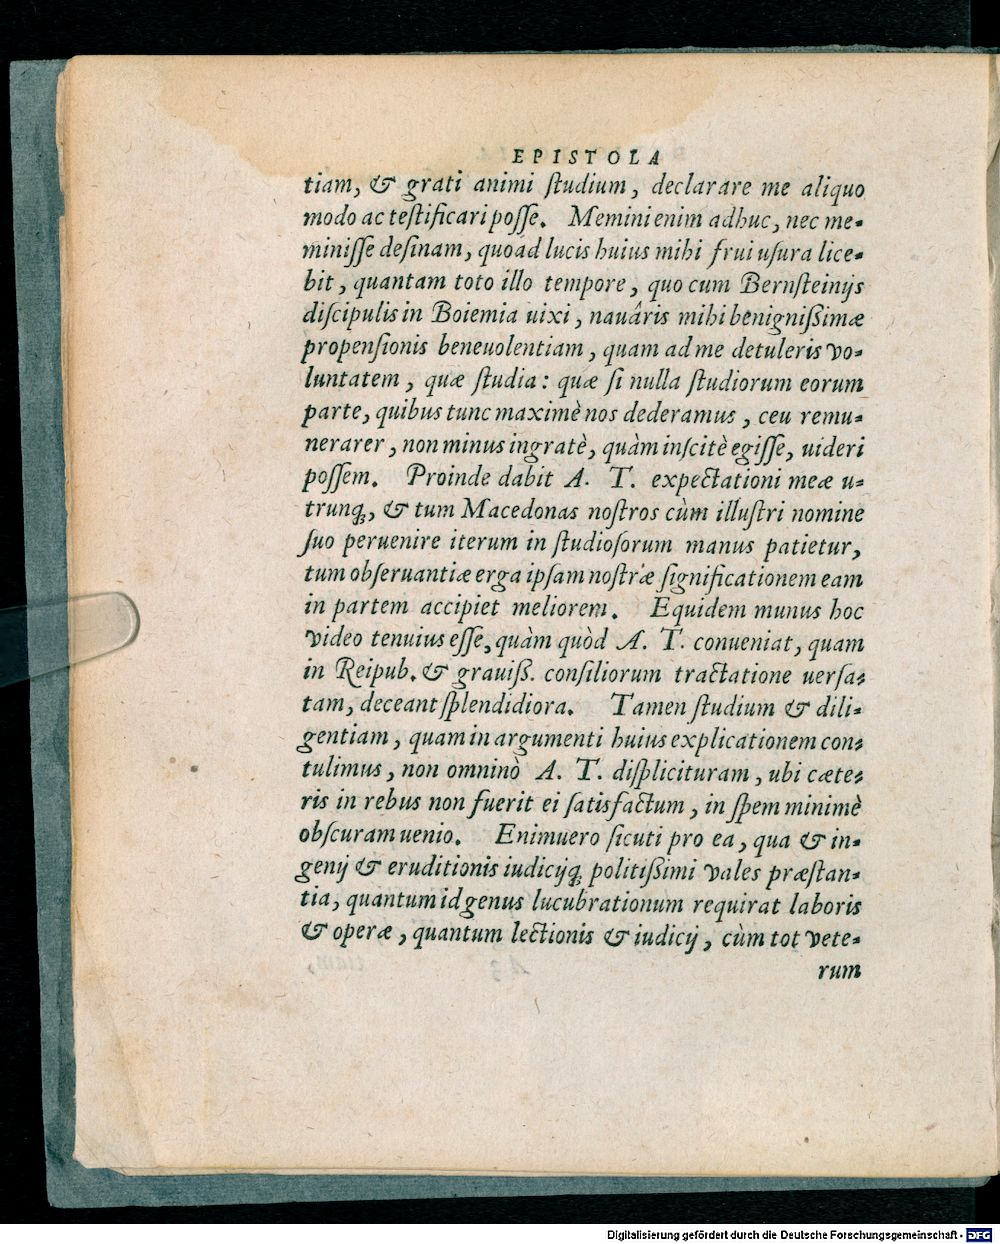 EPISTOLA
tiam, & grati animi ſtudium, declarare me aliquo
modo ac teſtificari poſſe. Memini enim adhuc, nec me-
miniſſe deſinam, quoad lucis huius mihi frui uſura lice-
bit, quantam toto illo tempore, quo cum Bernſteinijs
diſcipulis in Boiemia uixi, nauâris mihi benignißimæ
propenſionis beneuolentiam, quam ad me detuleris vo-
luntatem, quæ ſtudia: quæ ſi nulla ſtudiorum eorum
parte, quibus tunc maximè nos dederamus, ceu remu-
nerarer, non minus ingratè, quàm inſcitè egiſſe, uideri
poſſem. Proinde dabit A. T. expectationi meæ u-
trunq;, & tum Macedonas noſtros cùm illuſtri nomine
ſuo peruenire iterum in ſtudioſorum manus patietur,
tum obſeruantiæ erga ipſam noſtræ ſignificationem eam
in partem accipiet meliorem. Equidem munus hoc
video tenuius eſſe, quàm quòd A. T. conueniat, quam
in Reipub. & grauiß. conſiliorum tractatione uerſa-
tam, deceant ſplendidiora. Tamen ſtudium & dili-
gentiam, quam in argumenti huius explicationem con-
tulimus, non omninò A. T. diſplicituram, ubi cæte-
ris in rebus non fuerit ei ſatisfactum, in ſpem minimè
obſcuram uenio. Enimuero ſicuti pro ea, qua & in-
genij & eruditionis iudicijq; politißimi vales præſtan-
tia, quantum id genus lucubrationum requirat laboris
& operæ, quantum lectionis & iudicij, cùm tot vete-
rum
Digitalisierung gefördert durch die Deutsche Forschungsgemeinschaft - DFG